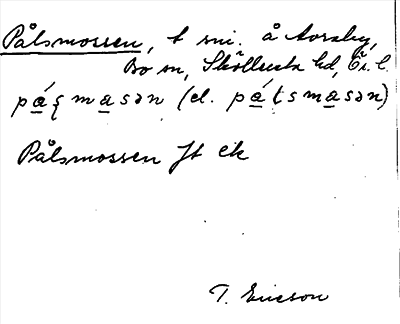 Pålsmossen, t sni. å Torsby,
Bo sn, Sköllersta hd, Ör. l.
pǻʂmasən (el. pá̱ḷsmasən)
Pålsmossen Jt ek
T. Ericson